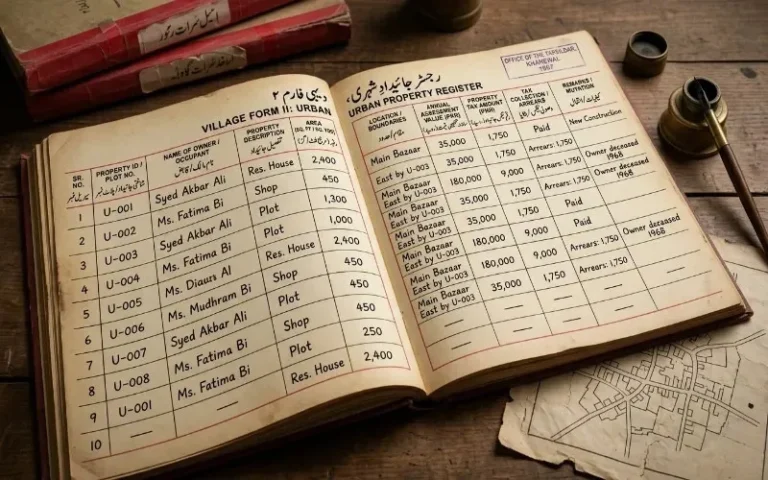 دیہی فارم ۲
VILLAGE FORM II: URBAN
SR. NO.
PROPERTY ID / PLOT NO.
NAME OF OWNER / OCCUPANT
PROPERTY DESCRIPTION
AREA
1 U-001 Syed Akbar Ali Res. House 2,400
2 U-002 Ms. Fatima Bi Shop 450
3 U-003 Syed Akbar Ali Plot 1,300
4 U-004 Ms. Fatima Bi Plot 1,000
5 U-005 Ms. Diaurs Al Res. House 2,400
6 U-006 Ms. Mudhram Bi Shop 450
7 U-007 Syed Akbar Ali Plot 450
8 U-008 Ms. Fatima Bi Shop 450
9 U-001 Ms. Fatima Bi Plot 250
10 — — Res. House 2,400
رجسٹر جائیداد شہری،
URBAN PROPERTY REGISTER
OFFICE OF THE
LOCATION / BOUNDARIES
ANNUAL ASSESSMENT VALUE (PKR)
PROPERTY TAX AMOUNT (PKR)
TAX COLLECTION / ARREARS
REMARKS / MUTATION
Main Bazaar 35,000 1,750 Paid New Construction
East by U-003 35,000 1,750 Arrears: 1,750 Owner deceased 1968
Main Bazaar
East by U-003 180,000 9,000 Arrears: 1,750 Owner deceased 1968
Main Bazaar
East by U-003 35,000 1,750
Main Bazaar
East by U-003 35,000 1,750 Paid
Main Bazaar
East by U-003 180,000 9,000 Arrears: 1,750 Owner deceased 1968
Main Bazaar
East by U-003 180,000 9,000 Arrears: 1,750
35,000 1,750
— — — — —
— — — — —